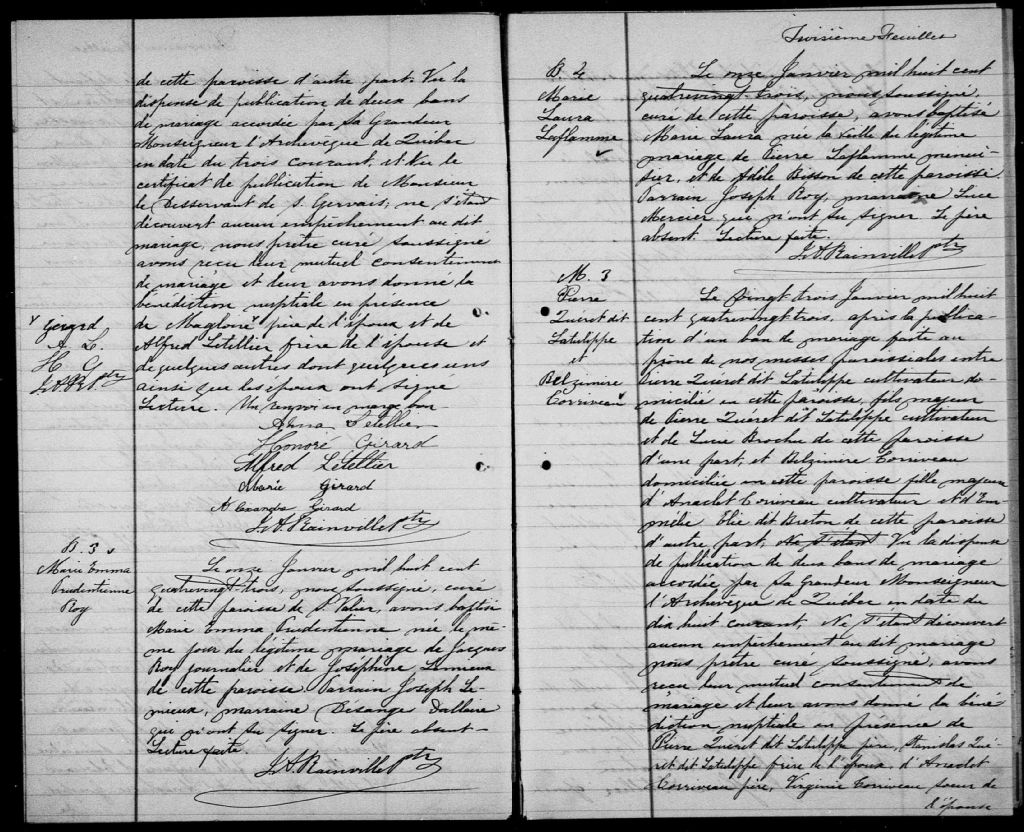 de cette paroisse d'autre part. Vu la
dispense de publication de deux bans
de mariage accordée par Sa Grandeur
Monseigneur l'Archevêque de Québec
en date du trois courant, et Vu le
certificat de publication de Monsieur
le Desservant de S. Gervais; ne s'étant
découvert aucun empêchement au dit
mariage, nous prêtre curé soussigné
avons reçu leur mutuel consentement
de mariage et leur avons donné la
bénédiction nuptiale en présence
de Magloire v père de l'époux et de
Alfred Letellier frère de l'épouse et
de quelques autres dont quelques uns
ainsi que les époux ont signé
Lecture. Un renvoi en marge bon
v Girard
A. L.
H. G.
L.A.R. Ptre
Anna Letellier
Honoré Girard
Alfred Letellier
Marie Girard
Girard
L.A. Rainville Ptre
B. 3
Marie Emma
Prudentienne
Roy
Le onze Janvier mil huit cent
quatrevingt-trois, nous soussigné, curé
de cette paroisse de St Valier, avons baptisé
Marie Emma Prudentienne née le mê-
me jour du légitime mariage de Jacques
Roy journalier et de Joséphine Lemieux
de cette paroisse. Parrain Joseph Le-
mieux, marraine Desange Dallaire
qui n'ont su signer. Le père absent.
Lecture faite.
L.A. Rainville Ptre
Troisième Feuillet
B. 4
Marie
Laura
Laflamme
Le onze Janvier mil huit cent
quatrevingt-trois, nous soussigné,
curé de cette paroisse, avons baptisé
Marie Laura née la veille du légitime
mariage de Pierre Laflamme menui-
sier, et de Adèle Bisson de cette paroisse.
Parrain Joseph Roy, marraine Luce
Mercier qui n'ont su signer. Le père
absent. Lecture faite.
L.A. Rainville Ptre
M. 3
Pierre
Quéret dit
Latulippe
et
Belzimire
Corriveau
Le Vingt trois Janvier mil huit
cent quatrevingt trois, après la publica-
tion d'un ban de mariage faite au
prône de nos messes paroissiales entre
Pierre Quéret dit Latulippe cultivateur do-
micilié en cette paroisse, fils majeur
de Pierre Quéret dit Latulippe cultivateur
et de Luce Brochu de cette paroisse
d'une part, et Belzimire Corriveau
domiciliée en cette paroisse fille majeure
d'Anaclet Corriveau cultivateur et d'Em-
mélie Elie dit Breton de cette paroisse
d'autre part; Ne s'étant Vu la dispense
de publication de deux bans de mariage
accordée par Sa Grandeur Monseigneur
l'Archevêque de Québec en date du
dix huit courant, Ne s'étant découvert
aucun empêchement au dit mariage
nous prêtre curé soussigné, avons
reçu leur mutuel consentement de
mariage et leur avons donné la béné-
diction nuptiale en présence de
Pierre Quéret dit Latulippe père, Stanislas Qué-
ret dit Latulippe frère de l'époux, d'Anaclet
Corriveau père, Virginie Corriveau soeur de
l'épouse